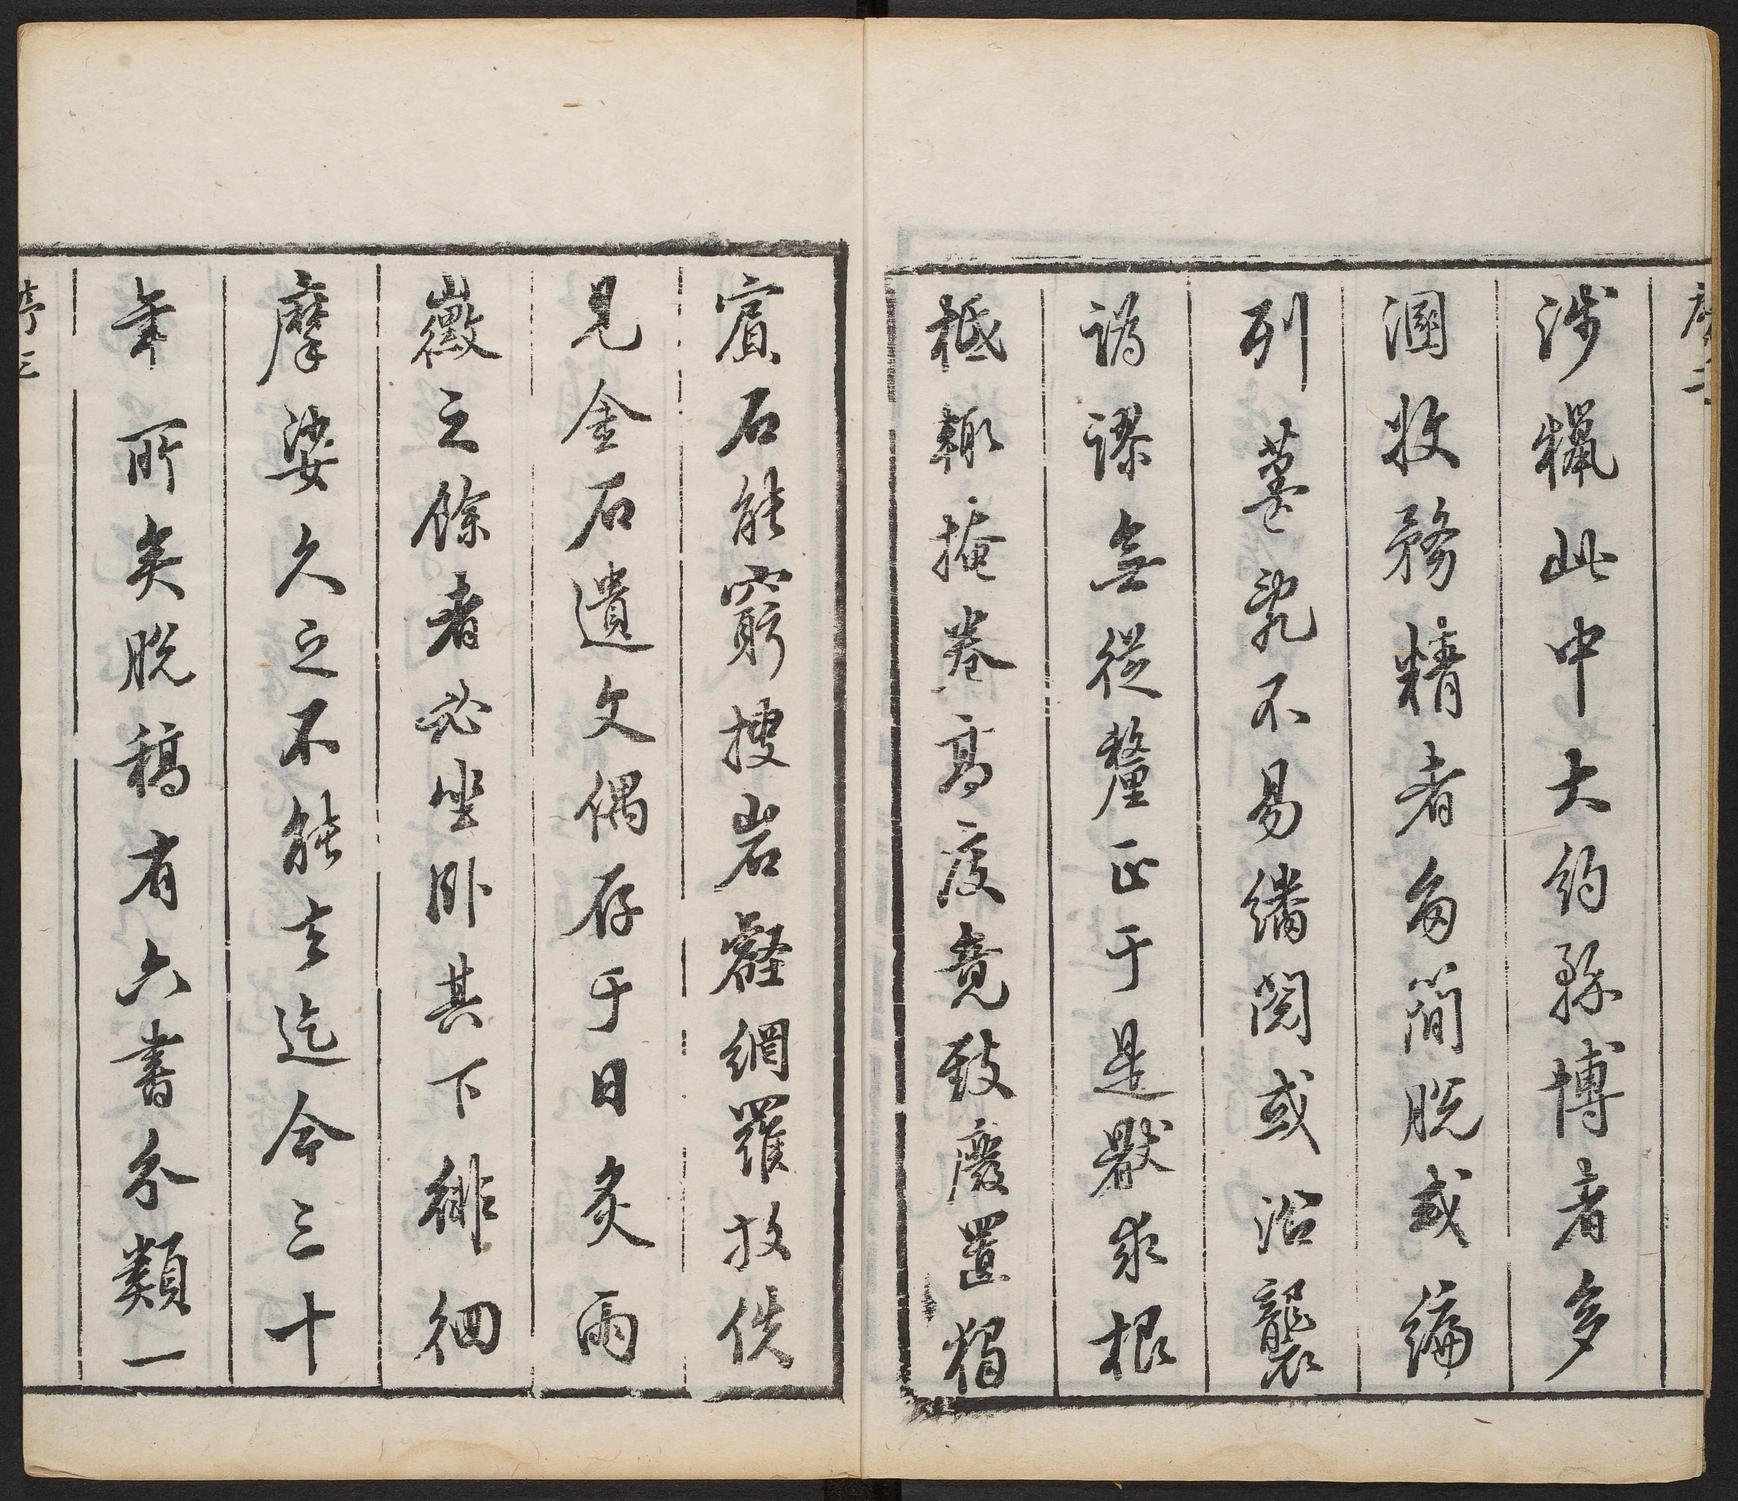 序二
涉獵此中大約務博者多
溷收務精者多簡脫或編
列蕪亂不易繙閱或沿襲
譌謬無從釐正于是厭求根
柢輒掩卷高度竟致廢置獨
賓石能窮搜岩壑網羅放佚
見金石遺文偶存于日炙雨
黴之餘者必坐臥其下徘徊
摩娑久之不能去迄今三十
年所矣脫稿有六書分類一
序三